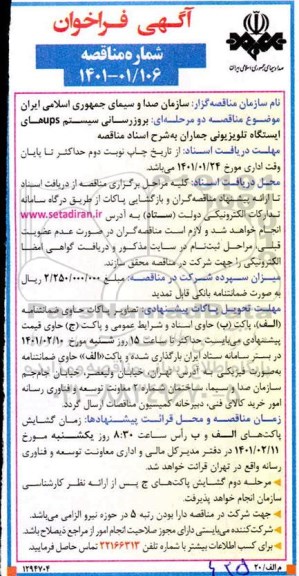 آگهی فراخوان
شماره مناقصه
۱۴۰۱-۰۱/۱۰۶
صدا و سیمای جمهوری اسلامی ایران
نام سازمان مناقصه‌گزار: سازمان صدا و سیمای جمهوری اسلامی ایران
موضوع مناقصه دو مرحله‌ای: بروزرسانی سیستم upsهای
ایستگاه تلویزیونی جماران به‌شرح اسناد مناقصه
مهلت دریافت اسناد: از تاریخ چاپ نوبت دوم حداکثر تا پایان
وقت اداری مورخ ۱۴۰۱/۰۱/۲۴ می‌باشد.
محل دریافت اسناد: کلیه مراحل برگزاری مناقصه از دریافت اسناد
تا ارائه پیشنهاد مناقصه‌گران و بازگشایی پاکات از طریق درگاه سامانه
تدارکات الکترونیکی دولت (ستاد) به آدرس www.setadiran.ir
انجام خواهد شد و لازم است مناقصه‌گران در صورت عدم عضویت
قبلی، مراحل ثبت‌نام در سایت مذکور و دریافت گواهی امضا
الکترونیکی را جهت شرکت در مناقصه محقق سازند.
میزان سپرده شرکت در مناقصه: مبلغ ۲/۲۵۰/۰۰۰/۰۰۰ ریال
به صورت ضمانتنامه بانکی قابل تمدید
مهلت تحویل پاکات پیشنهادی: تصاویر پاکات حاوی ضمانتنامه
(الف)، پاکت (ب) حاوی اسناد و شرایط عمومی و پاکت (ج) حاوی قیمت
پیشنهادی می‌بایست حداکثر تا ساعت ۱۵ روز شنبه مورخ ۱۴۰۱/۰۲/۱۰
در بستر سامانه ستاد ایران بارگذاری شده و پاکت «الف» حاوی ضمانتنامه
به‌صورت فیزیکی به آدرس تهران، خیابان ولیعصر، خیابان جام‌جم
صدا و سیما، ساختمان شماره ۲ معاونت توسعه و فناوری رسانه
امور خرید کالای فنی، دبیرخانه کمیسیون مناقصات ارسال گردد.
زمان مناقصه و محل قرائت پیشنهادها: زمان گشایش
پاکت‌های الف و ب رأس ساعت ۸:۳۰ روز یکشنبه مورخ
۱۴۰۱/۰۲/۱۱ در دفتر مدیرکل مالی و اداری معاونت توسعه و فناوری
رسانه واقع در تهران قرائت خواهد شد.
مرحله دوم گشایش پاکت‌های ج پس از ارائه نظر کارشناسی
سازمان انجام خواهد پذیرفت.
جهت شرکت در مناقصه دارا بودن رتبه ۵ در حوزه نیرو الزامی می‌باشد.
شرکت‌کننده می‌بایستی دارای مجوز صلاحیت انجام امور از مراجع ذیصلاح باشد.
برای کسب اطلاعات بیشتر با شماره تلفن ۲۲۱۶۶۳۱۳ تماس حاصل فرمایید.
م الف/۲۰
۱۲۹۴۷۰۴